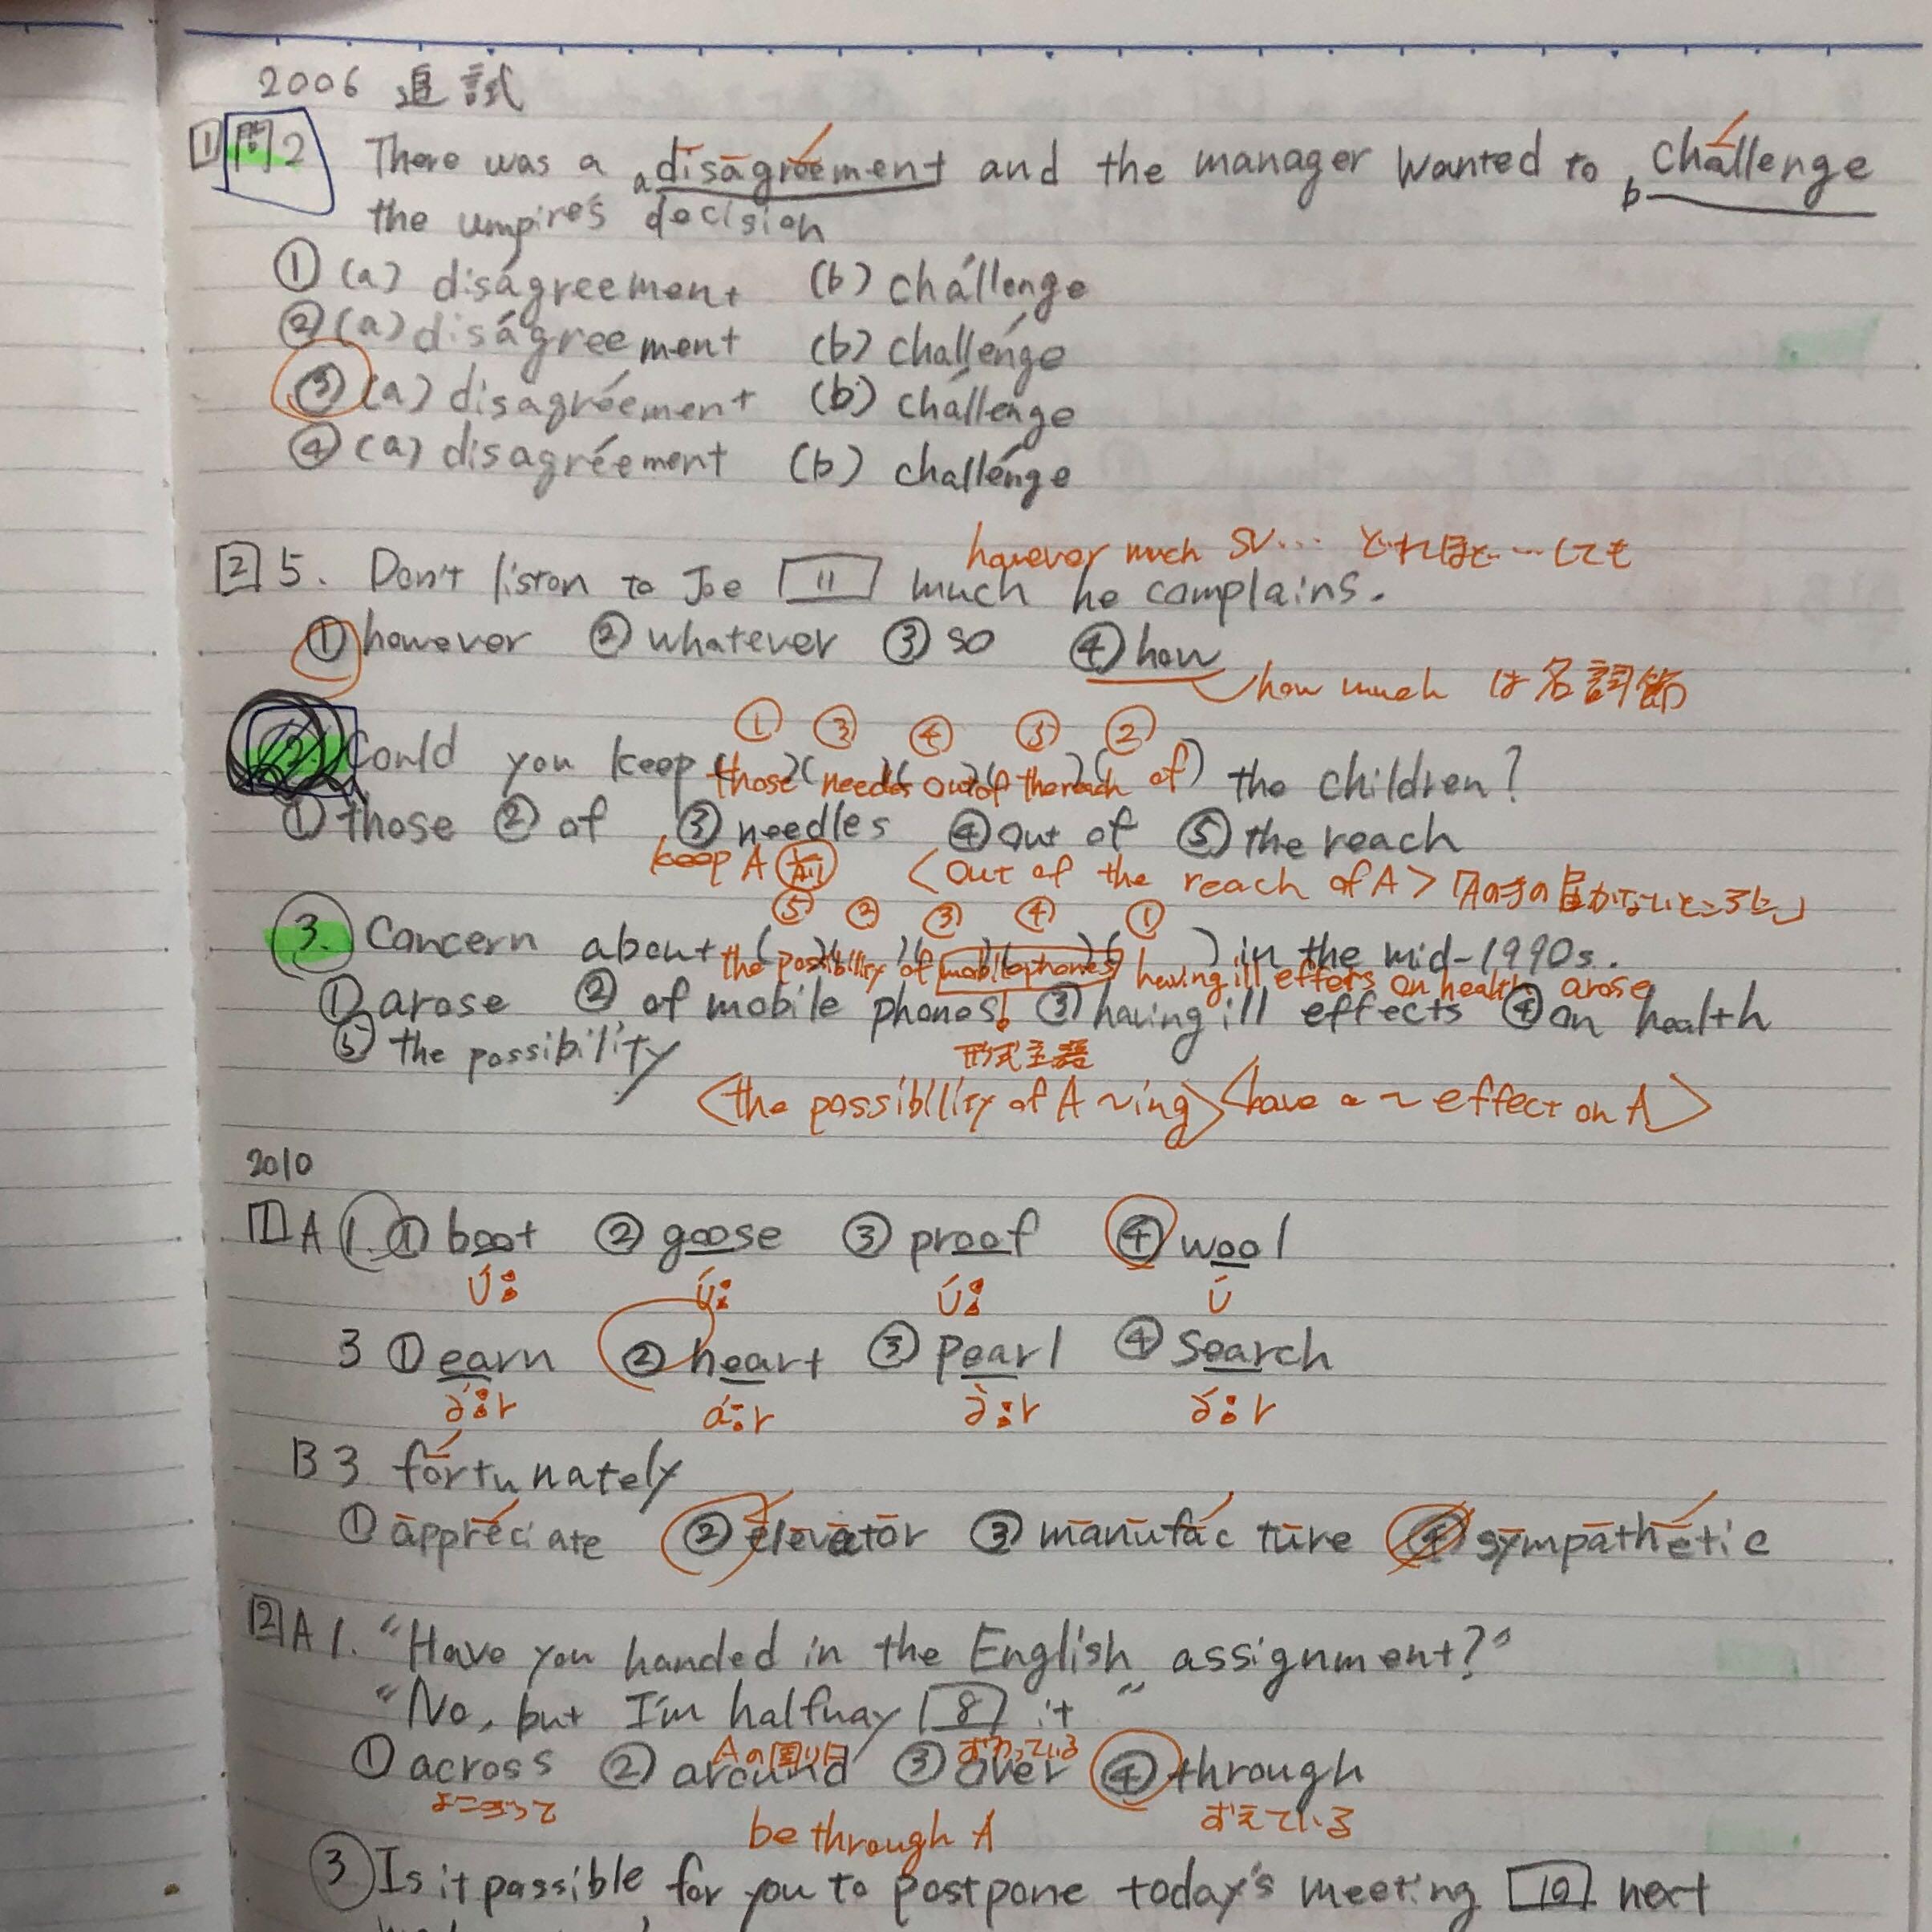 2006 追試
1 問2 There was a a disagreement and the manager wanted to b challenge
the umpire's decision
① (a) diságreement (b) chállenge
② (a) diságreement (b) challénge
③ (a) disagréement (b) chállenge
④ (a) disagréement (b) challénge
however much SV... どれほど…しても
2 5. Don't listen to Joe 11 much he complains.
① however ② whatever ③ so ④ how
how much は名詞節
① ③ ④ ⑤ ②
2. Could you keep (those)(needles)(out of)(the reach)(of) the children?
① those ② of ③ needles ④ out of ⑤ the reach
keep A <out of the reach of A> 「Aの手の届かないところに」
⑤ ② ③ ④ ①
3. Concern about ( )( )( )( )( ) in the mid-1990s.
the possibility of mobile phones having ill effers on health arose
① arose ② of mobile phones ③ having ill effects ④ on health
⑤ the possibility 形式主語
<the possibility of A ~ing> <have a ~ effect on A>
2010
1 A 1. ① boot ② goose ③ proof ④ wool
ú: ú: ú: ú
3 ① earn ② heart ③ pearl ④ search
ə́:r á:r ə́:r ə́:r
B 3 fortunately
① appreciate ② elevator ③ manufacture ④ sympathetic
2 A 1. "Have you handed in the English assignment?"
"No, but I'm halfway 8 it"
Aの周りに
① across ② around ③ over ④ through
よこぎって be through A
3 Is it possible for you to postpone today's meeting 10 next